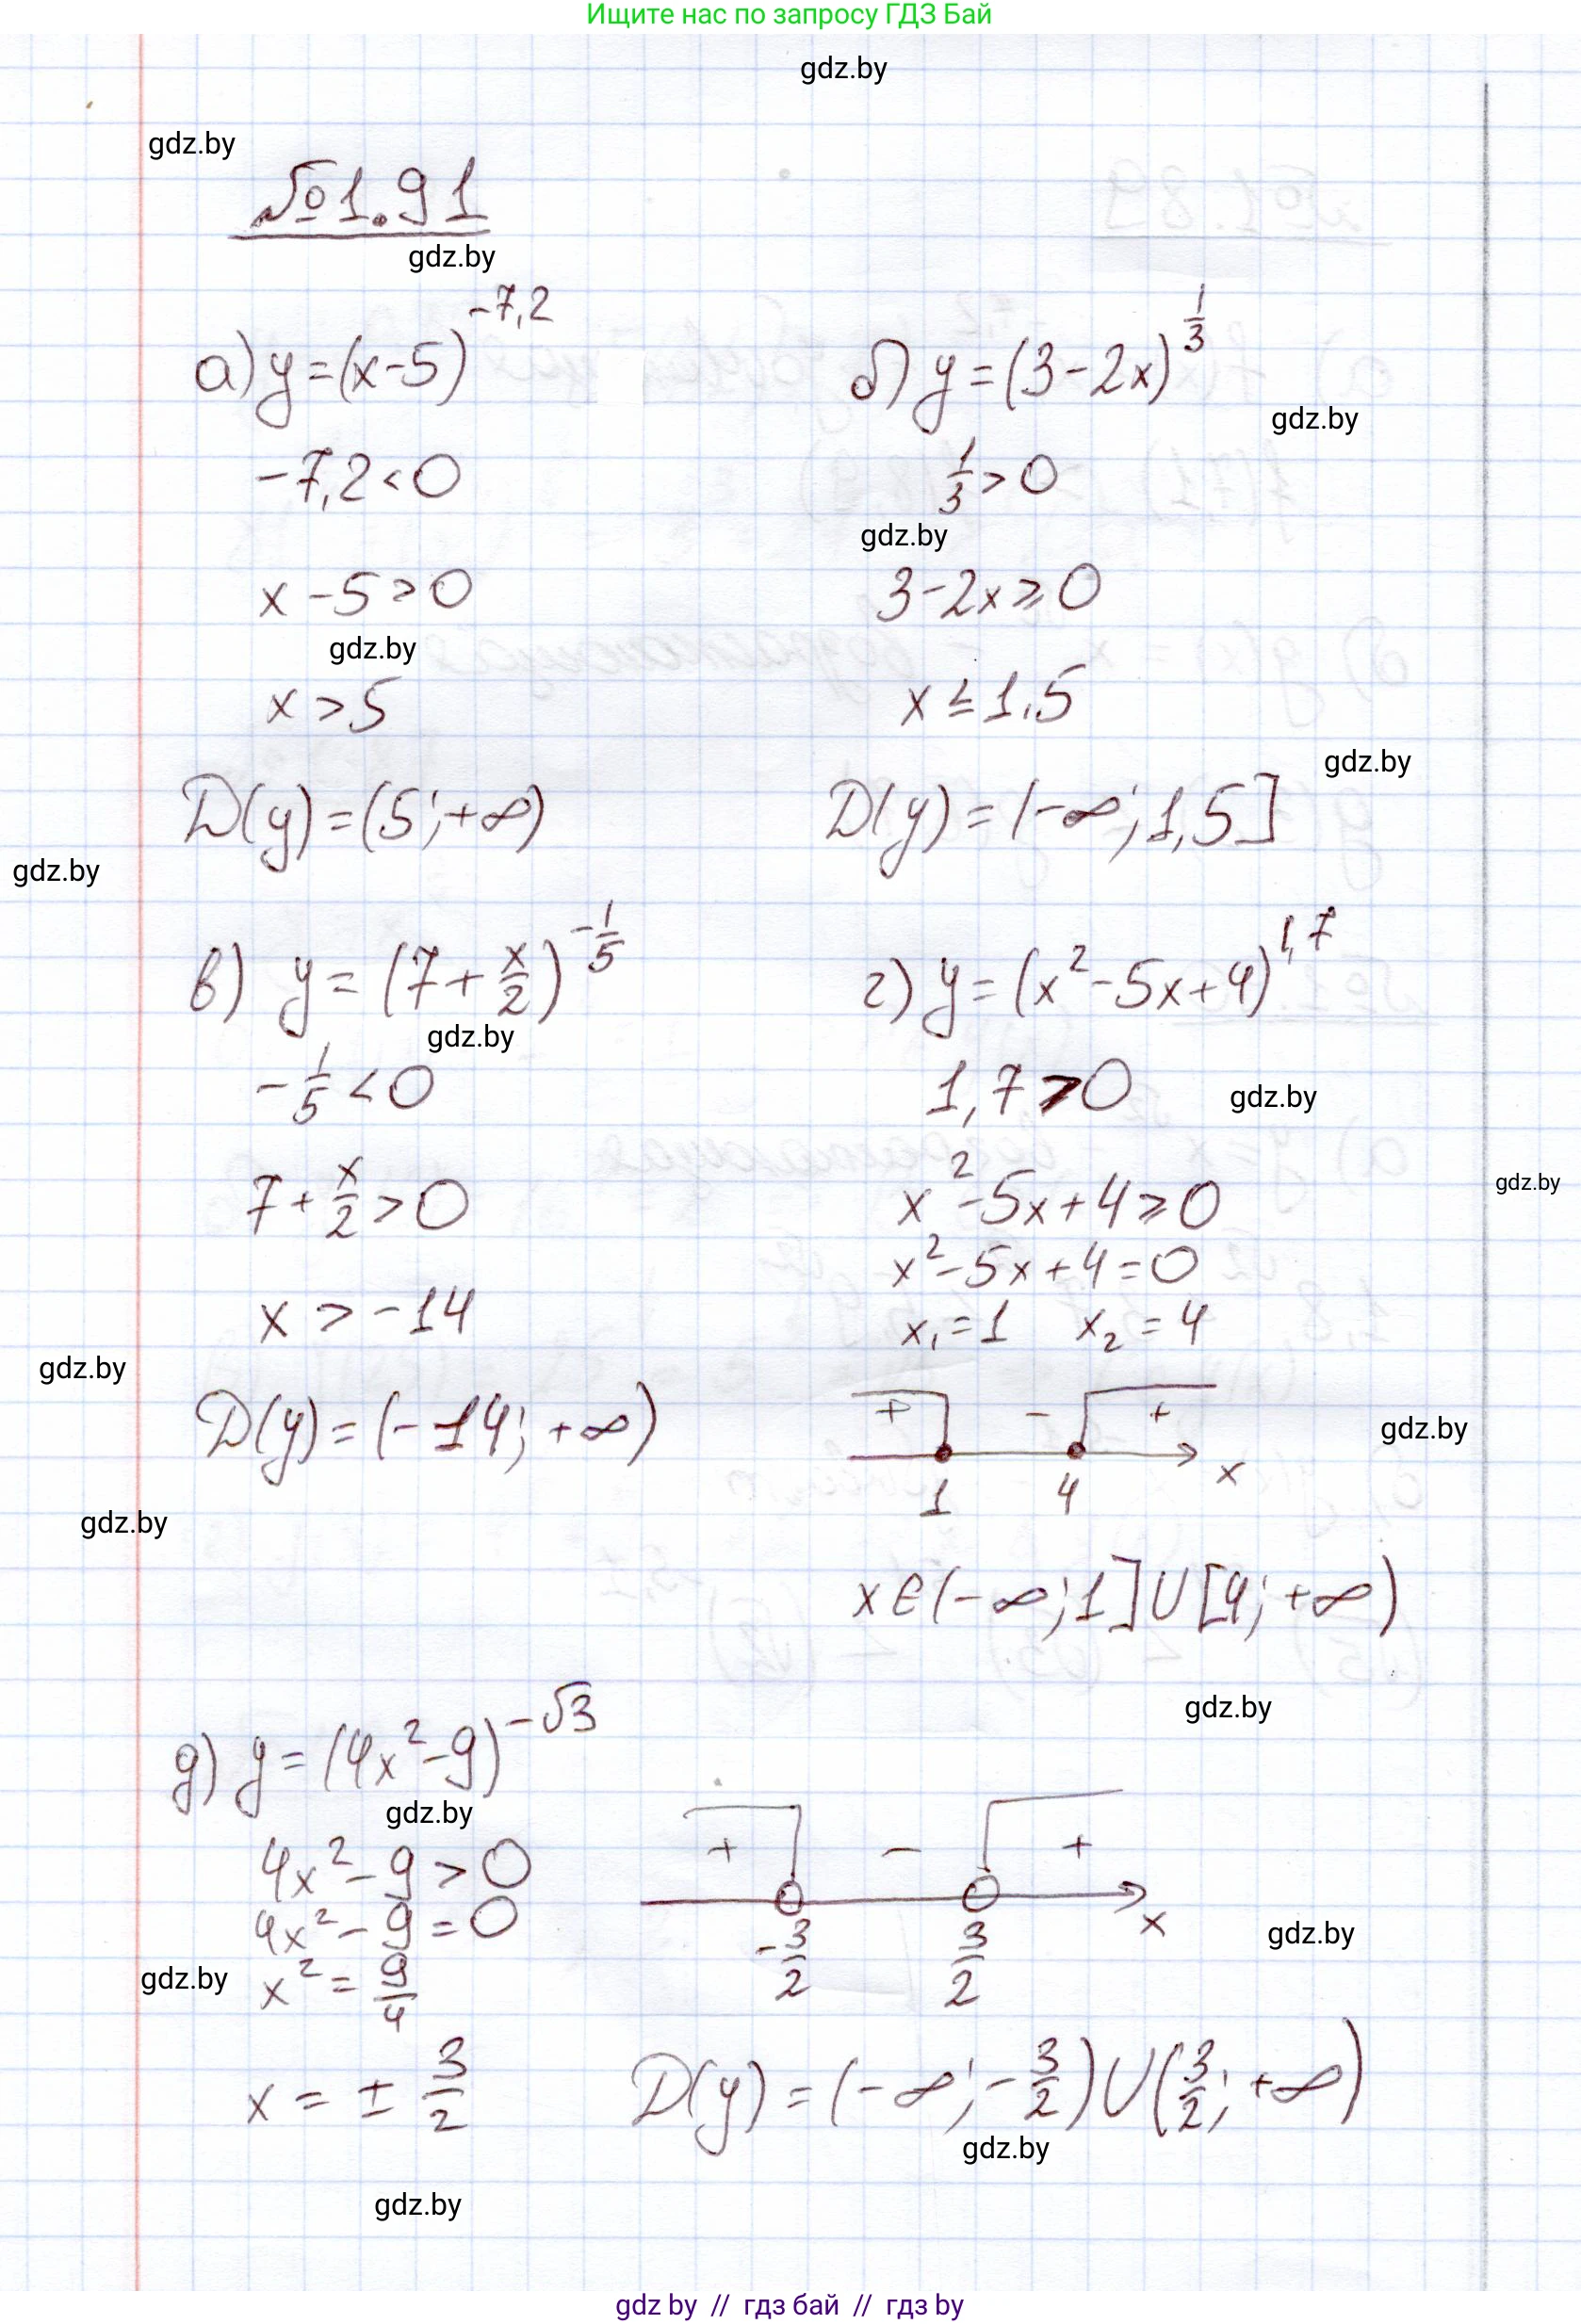 Ищите нас по запросу ГДЗ Бай
gdz.by
gdz.by
№1.91
gdz.by
а) y=(x-5)^{-7,2}
б) y=(3-2x)^{\frac{1}{3}}
gdz.by
-7,2<0
\frac{1}{3}>0
gdz.by
x-5>0
3-2x≥0
gdz.by
x>5
x≤1,5
gdz.by
D(y)=(5;+∞)
D(y)=(-∞;1,5]
gdz.by
в) y=(7+\frac{x}{2})^{-\frac{1}{5}}
г) y=(x²-5x+4)^{1,7}
gdz.by
-\frac{1}{5}<0
1,7>0
gdz.by
7+\frac{x}{2}>0
x²-5x+4≥0
gdz.by
x²-5x+4=0
x>-14
x₁=1 x₂=4
gdz.by
D(y)=(-14;+∞)
+ - +
gdz.by
1 4 x
gdz.by
x∈(-∞;1]∪[4;+∞)
gdz.by
д) y=(4x²-9)^{-√3}
gdz.by
4x²-9>0
+ - +
4x²-9=0
-\frac{3}{2} \frac{3}{2} x
gdz.by
gdz.by
x²=\frac{9}{4}
x=±\frac{3}{2}
D(y)=(-∞;-\frac{3}{2})∪(\frac{3}{2};+∞)
gdz.by
gdz.by
gdz by // гдз бай // гдз by